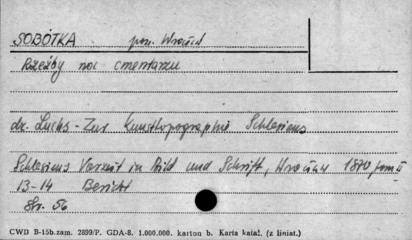 SOBÓTKA pow. Wrocław
Rzeźby na cmentarzu
dr. Luchs - Zur Kunsttopographie Schlesiens
Schlesiens Vorzeit in Bild und Schrift, Wrocław 1870 tom II
13-14 Bericht
Str. 56
CWD B-15b. zam. 2899/P. GDA-8. 1.000.000. karton b. Karta katal. (z liniat.)